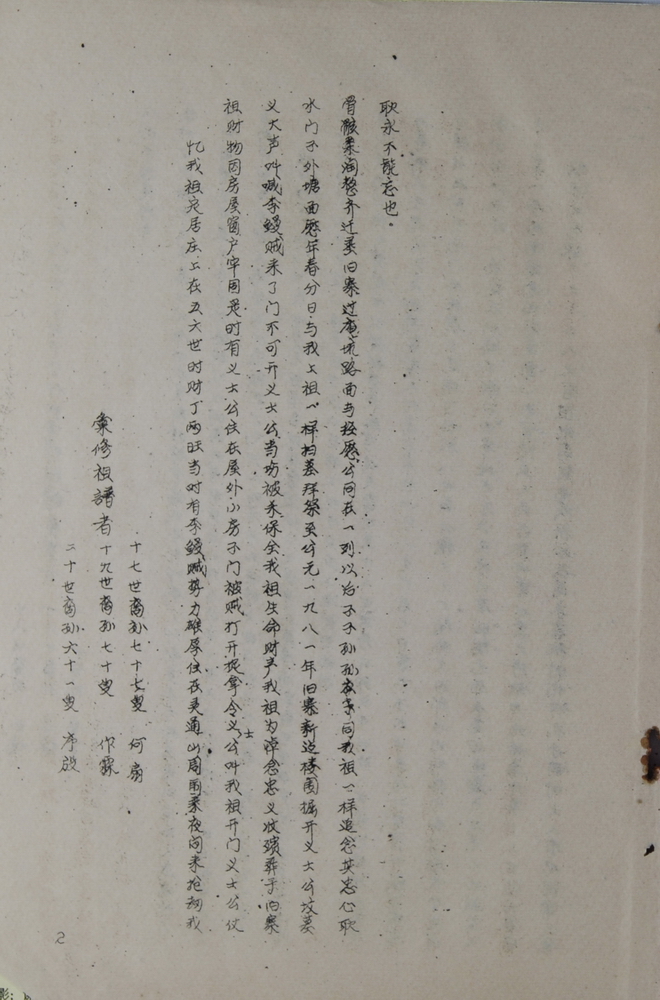 彙修祖譜者
十七世裔孙七十七叟 何扇
十九世裔孙七十叟 作霖
二十世裔孙六十一叟 序殷
忆我祖完居庄上在五六世时财丁两旺当时有李鳗贼势力雄厚住在灵通山周雨系夜间来抢劫我
祖财物因房屋窗户牢固是时有义士公住在屋外小房子门被贼打开捉拿令义士公叫我祖开门义士公仗
义大声叫喊李鳗贼来了门不可开义士公当场被杀保全我祖生命财产我祖为悼念忠义收殡葬于旧寨
水门子外塘面历年春分日与我上祖一样扫墓拜祭至公元一九八一年旧寨新边楼围掘开义士公坟墓
骨骸柔润整齐迁葬旧寨过坑路面与公同在一列以后子子孙孙同我祖一样追念其忠心耿
耿永不能忘也。
2